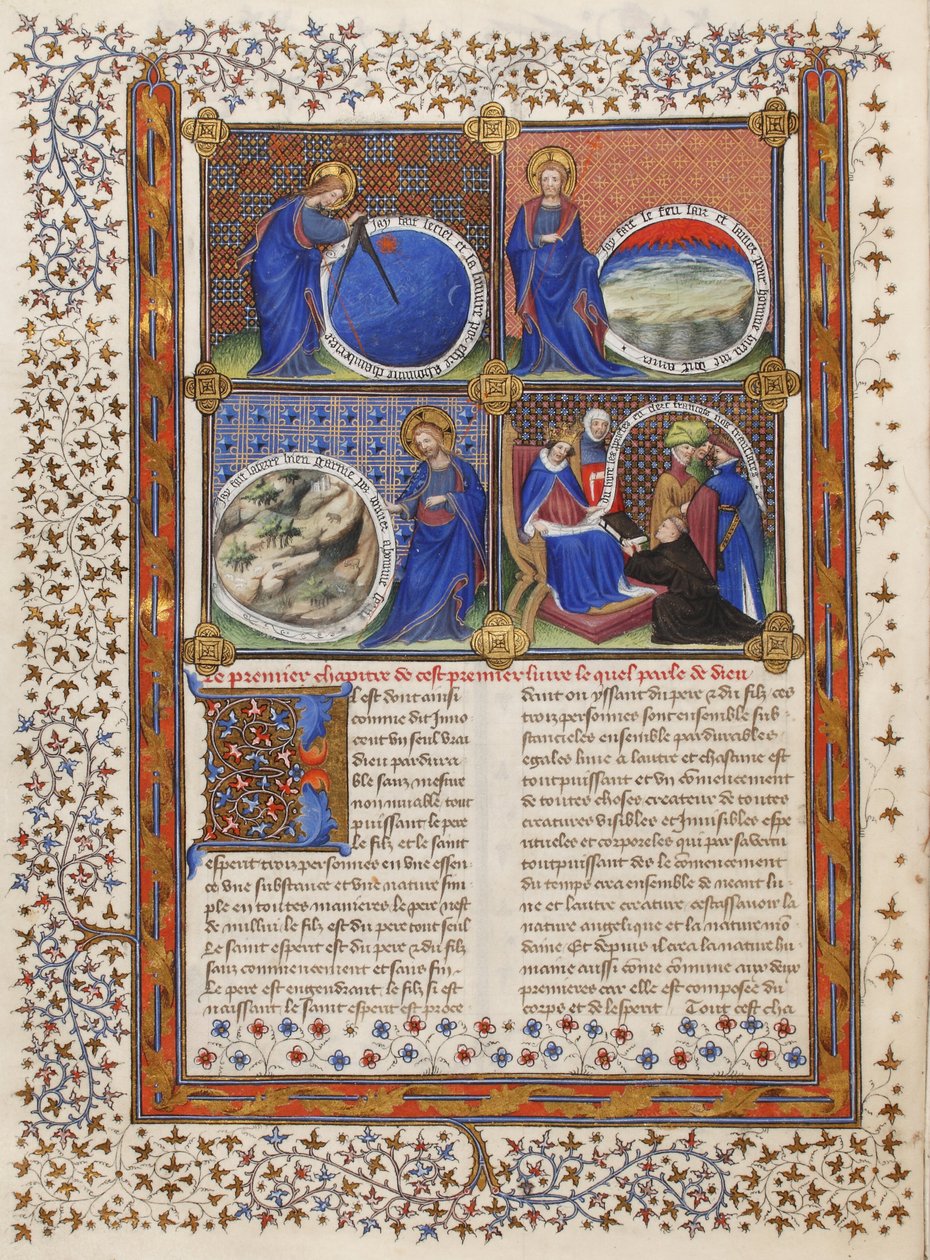 Jay fait le ciel et la lumiere por estre a homme chamberiere
Jay fait le feu lair et
homme bien me doit amer
Jay fait la terre bien garnie por donner a homme
du livre les proprietez en cler francois vos
Le premier chapitre de cest premier livre le quel parle de dieu
Il est dont ainsi
comme dit Inno
cent vn seul vrai
dieu pardura
ble sanz mesure
non muable tout
puissant le pere
le filz et le saint
esperit trois personnes en vne essen
ce vne substance et vne nature sim
ple en toutes manieres le pere nest
de nullui le filz est du pere tout seul
Le saint esperit est du pere & du filz
sanz commencement et sans fin
Le pere est engendrant le filz si est
naissant le saint esperit est proce
dent ou yssant du pere & du filz ces
trois personnes sont ensemble sub
stancieles ensemble pardurables
egales lune a lautre et chascune est
tout puissant et vn comencement
de toutes choses createur de toutes
creatures visibles et Inuisibles espi
ritueles et corporeles qui par sa vertu
tout puissant des le comencement
du temps crea ensemble de neant lu
ne et lautre creature cestassauoir la
nature angelique et la nature mo
daine Et depuis il crea la nature hu
maine aussi come comune aux deux
premieres car elle est composee du
corps et de lesperit Tout cest cha